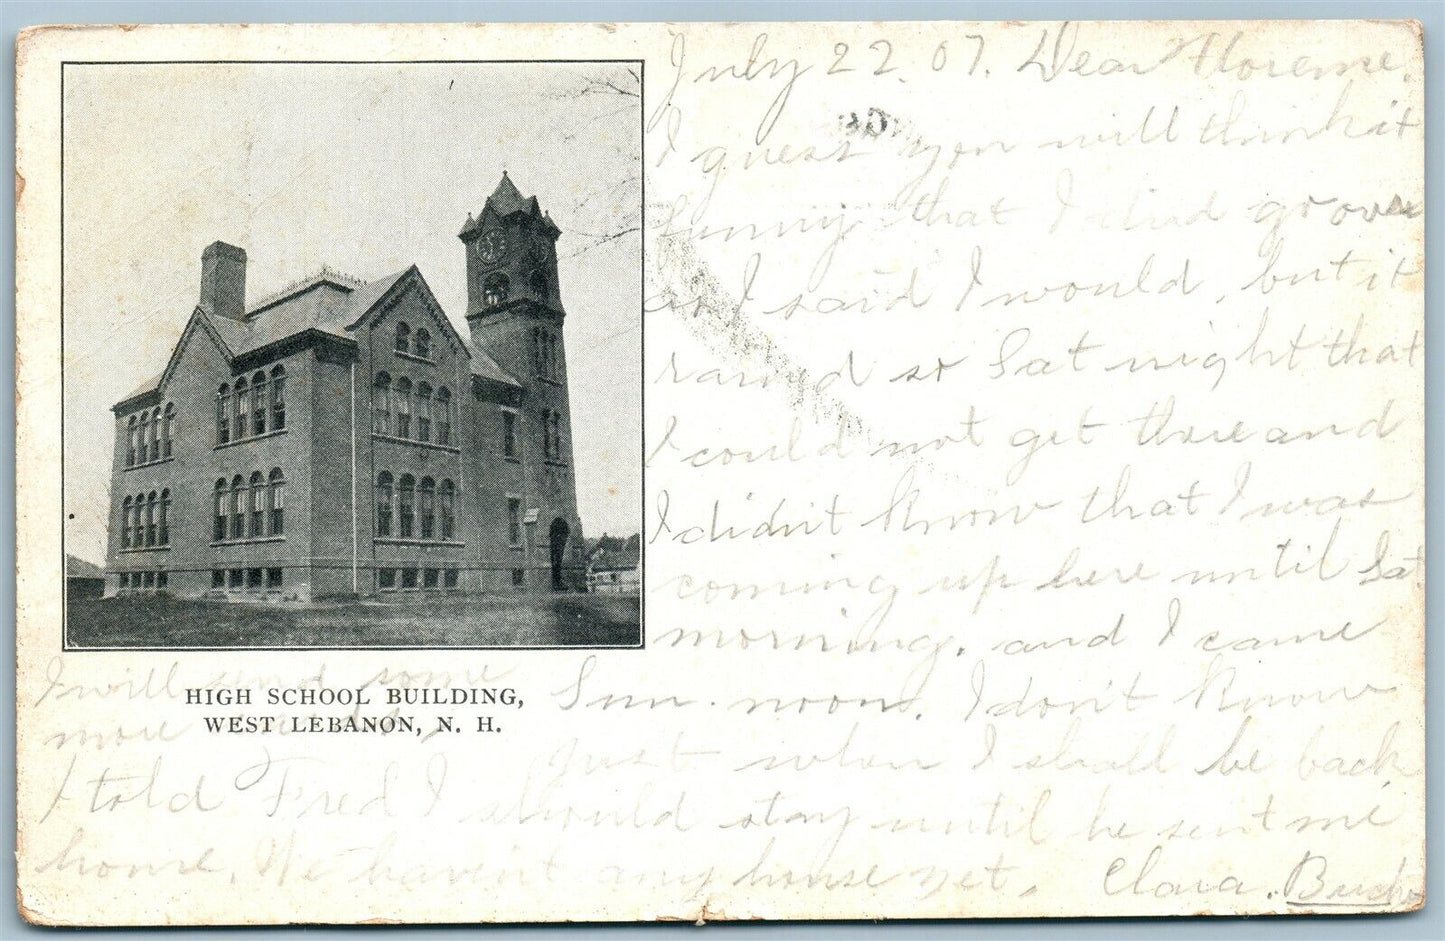 July 22. 07. Dear Florence,
I guess you will think it
funny that I did go over
as I said I would, but it
rained so Sat night that
I could not get there and
I didn't know that I was
coming up here until Sat
morning. and I came
Sun. noon. I don't know
just when I shall be back
I told Fred I should stay until he sent me
home. We haven't any house yet. Clara.
I will send some
more
HIGH SCHOOL BUILDING,
WEST LEBANON, N. H.